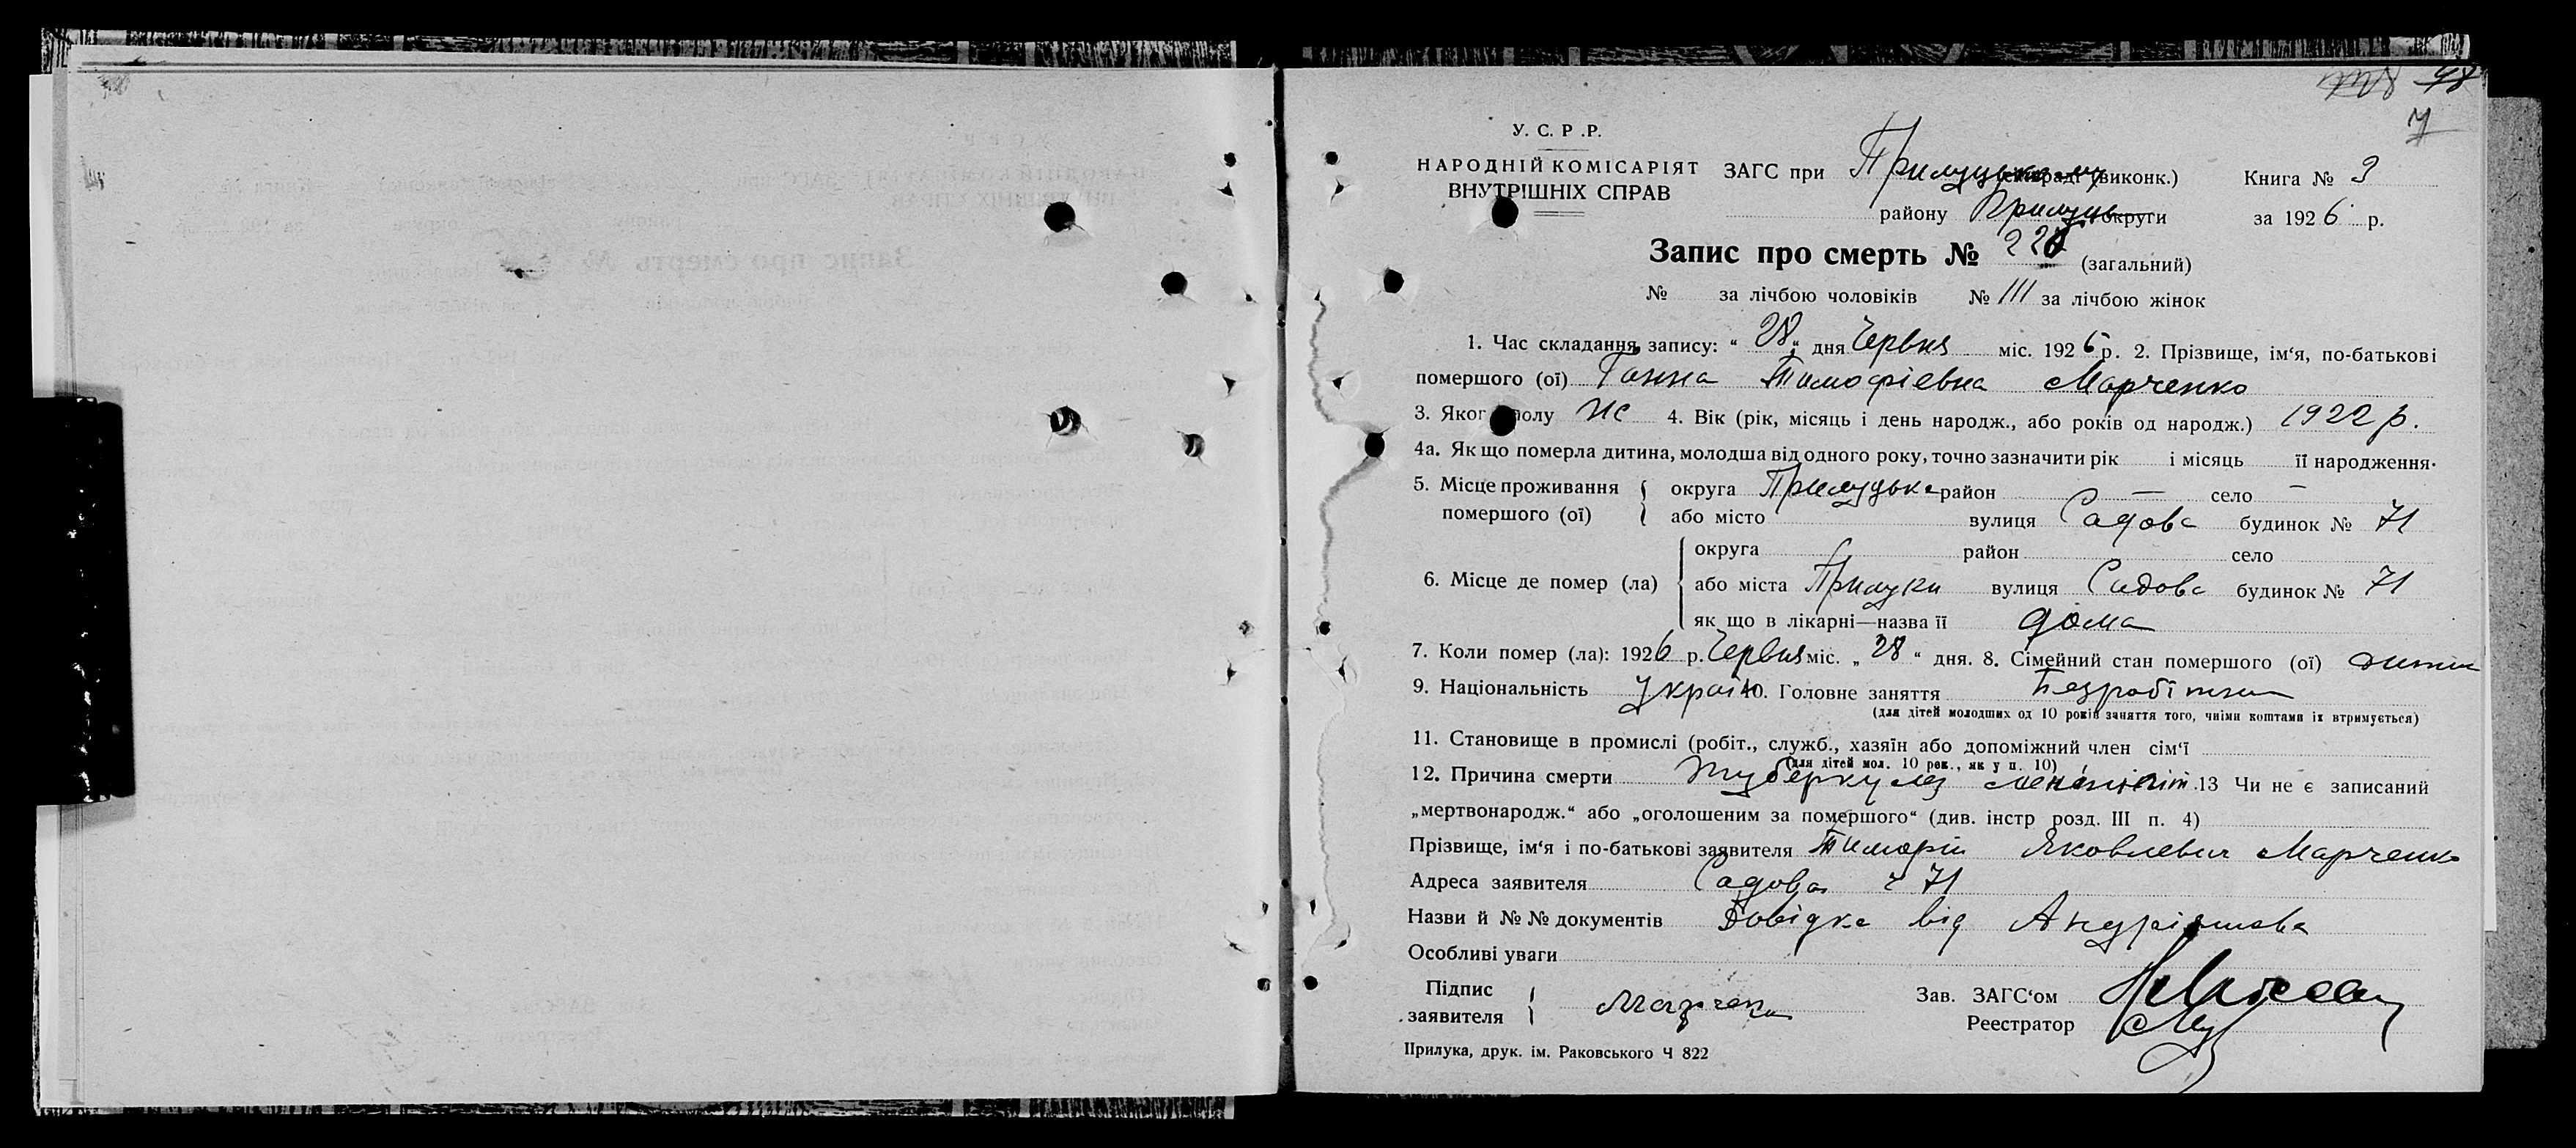 98
7
У. С. Р .Р.
НАРОДНІЙ КОМІСАРІЯТ ЗАГС при Прилуцькому (виконк.) Книга № 3
ВНУТРІШНІХ СПРАВ району Прилуць округи за 1926 р.
Запис про смерть № 220 (загальний)
№ за лічбою чоловіків № 111 за лічбою жінок
1. Час складання запису: “ 28 „ дня Червня міс. 1926 р. 2. Прізвище, ім‘я, по-батькові
помершого (ої) Ганна Тимофіевна Марченко
3. Яког полу Жс 4. Вік (рік, місяць і день народж., або років од народж.) 1922 р.
4а. Як що померла дитина, молодша від одного року, точно зазначити рік і місяць її народження.
5. Місце проживання { округа Прилуцька район — село —
помершого (ої) або місто вулиця Садова будинок № 71
округа район село
6. Місце де помер (ла) { або міста Прилуки вулиця Садова будинок № 71
як що в лікарні—назва її дома
7. Коли помер (ла): 1926 р. Червня міс. „ 28 “ дня. 8. Сімейний стан помершого (ої)
9. Національність Україн 10. Головне заняття Безробітний
(для дітей молодших од 10 років заняття того, чиїми коштами їх втримується)
11. Становище в промислі (робіт., служб., хазяїн або допоміжний член сім‘ї
(для дітей мол. 10 рок., як у п. 10)
12. Причина смерти туберкулез менінгіт .13 Чи не є записаний
„мертвонародж.“ або „оголошеним за помершого“ (див. інстр розд. III п. 4)
Прізвище, ім‘я і по-батькові заявителя Тимофій Яковлевич Марченко
Адреса заявителя Садова ч 71
Назви й № № документів Довідка від Андріяшева
Особливі уваги
Підпис
заявителя } Марченко
Зав. ЗАГС‘ом
Реестратор
Прилука, друк. ім. Раковського Ч 822